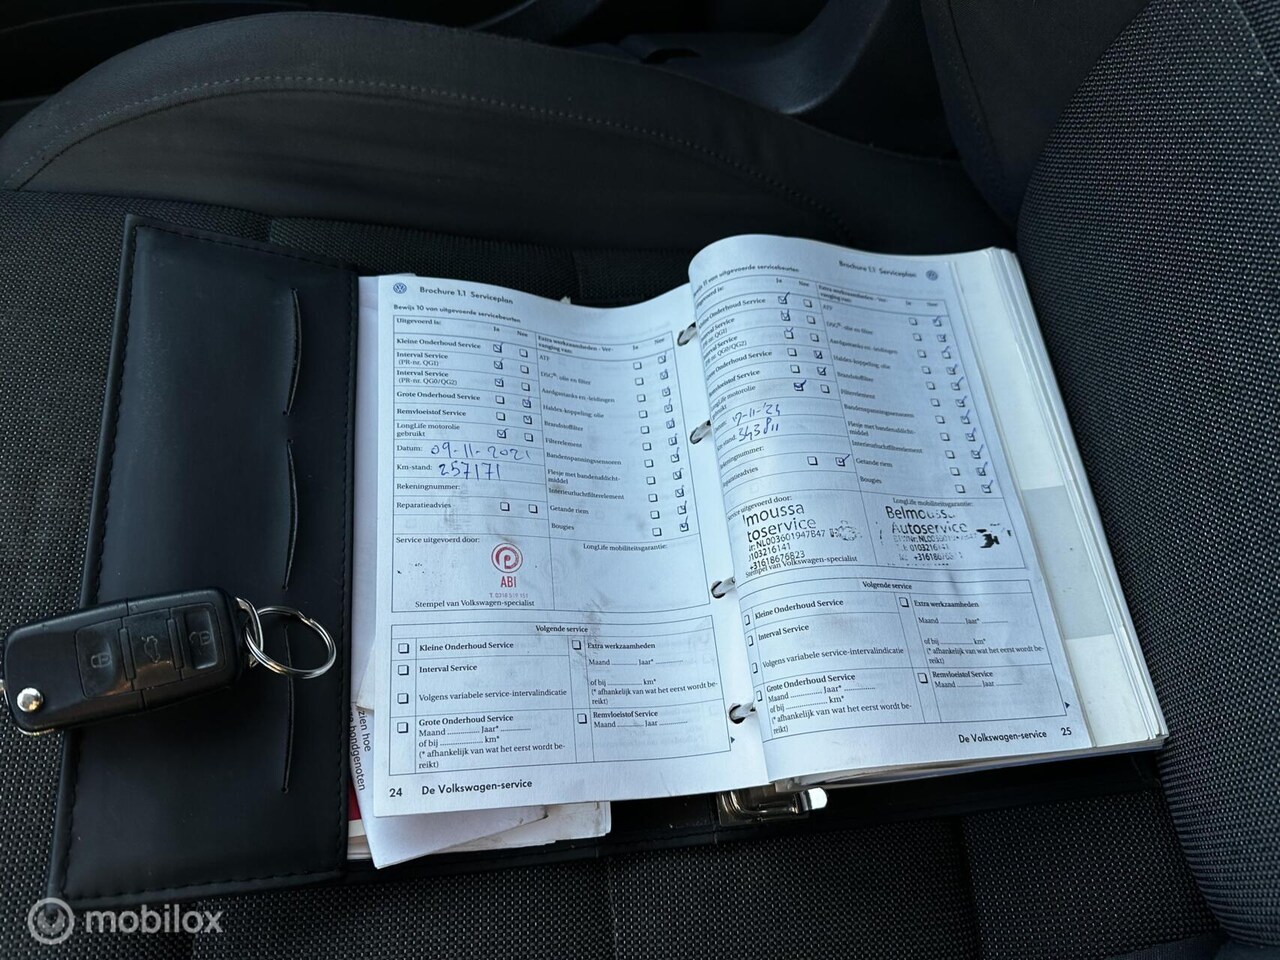 Brochure 1.1 Serviceplan
Bewijs 10 van uitgevoerde servicebeurten
Uitgevoerd is:
Ja
Nee
Kleine Onderhoud Service
Interval Service
(PR-nr. QG1)
Interval Service
(PR-nr. QG0/QG2)
Grote Onderhoud Service
Remvloeistof Service
LongLife motorolie
gebruikt
Datum: 09-11-2021
Km-stand: 257171
Rekeningnummer:
Reparatieadvies
Extra werkzaamheden - Ver-
vanging van:
Ja
Nee
ATF
DSG®-olie en filter
Aardgastanks en -leidingen
Haldex-koppeling; olie
Brandstoffilter
Filterelement
Bandenspanningssensoren
Flesje met bandenafdicht-
middel
Interieurluchtfilterelement
Getande riem
Bougies
Service uitgevoerd door:
ABI
Stempel van Volkswagen-specialist
LongLife mobiliteitsgarantie:
Volgende service
Kleine Onderhoud Service
Interval Service
Volgens variabele service-intervalindicatie
Grote Onderhoud Service
Maand ............... Jaar* ...............
of bij ............... km*
(* afhankelijk van wat het eerst wordt be-
reikt)
Extra werkzaamheden
Maand ............ Jaar* ............
of bij ............ km*
(* afhankelijk van wat het eerst wordt be-
reikt)
Remvloeistof Service
Maand ............ Jaar ............
24 De Volkswagen-service
zien hoe
bondgenoten
Brochure 1.1 Serviceplan
Bewijs 11 van uitgevoerde servicebeurten
Uitgevoerd is:
Ja
Nee
Kleine Onderhoud Service
Interval Service
(PR-nr. QG1)
Interval Service
(PR-nr. QG0/QG2)
Grote Onderhoud Service
Remvloeistof Service
LongLife motorolie
gebruikt
Km-stand: 343811
Rekeningnummer:
Reparatieadvies
Extra werkzaamheden - Ver-
vanging van:
Ja
Nee
ATF
DSG®-olie en filter
Aardgastanks en -leidingen
Haldex-koppeling; olie
Brandstoffilter
Filterelement
Bandenspanningssensoren
Flesje met bandenafdicht-
middel
Interieurluchtfilterelement
Getande riem
Bougies
Service uitgevoerd door:
lmoussa
toservice
NL003601947847
0103216141
+31618676823
Stempel van Volkswagen-specialist
LongLife mobiliteitsgarantie:
Belmouss
Autoservice
0103216141
Volgende service
Kleine Onderhoud Service
Interval Service
Volgens variabele service-intervalindicatie
Grote Onderhoud Service
Maand ............... Jaar* ...............
of bij ............... km*
(* afhankelijk van wat het eerst wordt be-
reikt)
Extra werkzaamheden
Maand ............ Jaar* ............
of bij ............ km*
(* afhankelijk van wat het eerst wordt be-
reikt)
Remvloeistof Service
Maand ............ Jaar ............
De Volkswagen-service 25
mobilox